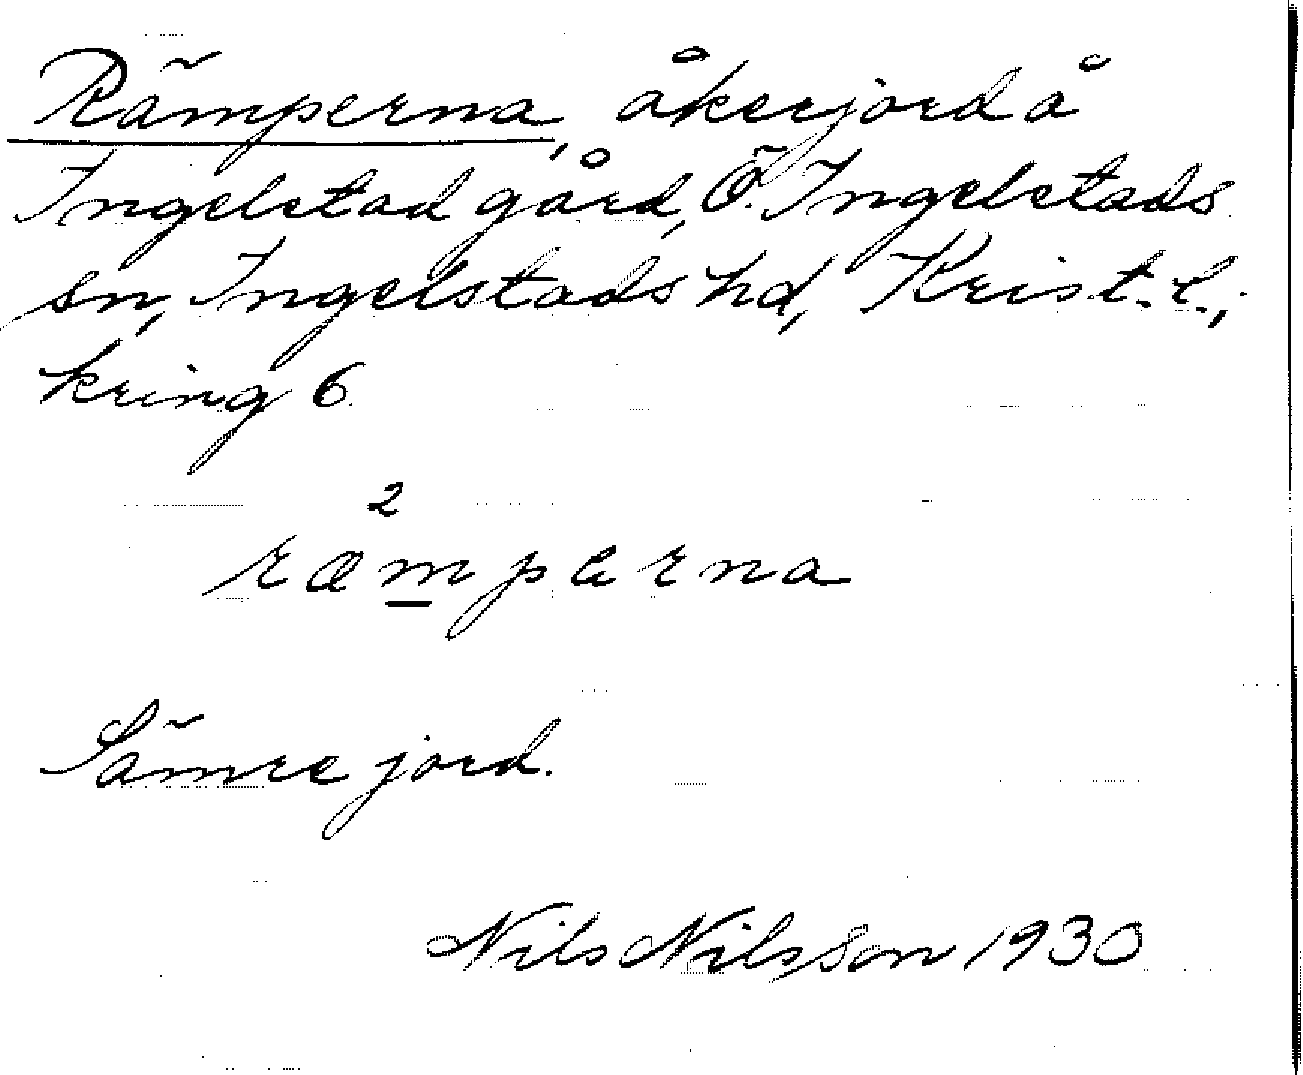 Rämperna, åkerjord å
Ingelstad gård, Ö. Ingelstads
sn, Ingelstads hd, Krist. l.,
kring 6.
2
ræmperna
Sämre jord.
Nils Nilsson 1930